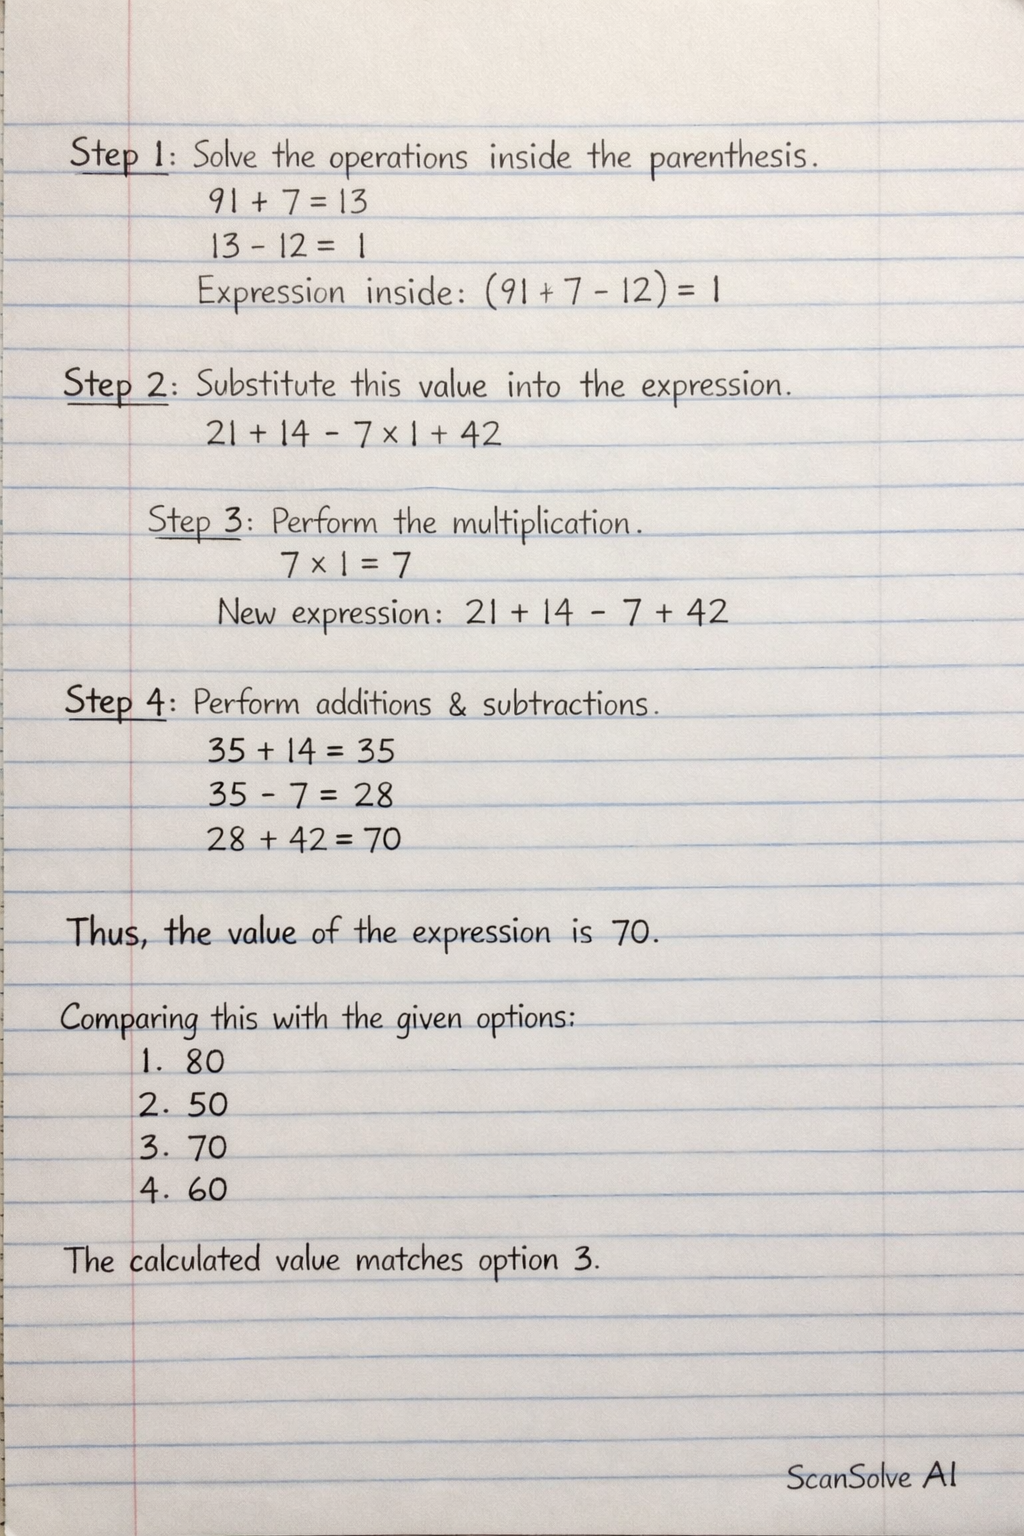 Step 1: Solve the operations inside the parenthesis.
91 + 7 = 13
13 - 12 = 1
Expression inside: (91 + 7 - 12) = 1
Step 2: Substitute this value into the expression.
21 + 14 - 7 × 1 + 42
Step 3: Perform the multiplication.
7 × 1 = 7
New expression: 21 + 14 - 7 + 42
Step 4: Perform additions & subtractions.
35 + 14 = 35
35 - 7 = 28
28 + 42 = 70
Thus, the value of the expression is 70.
Comparing this with the given options:
1. 80
2. 50
3. 70
4. 60
The calculated value matches option 3.
ScanSolve AI